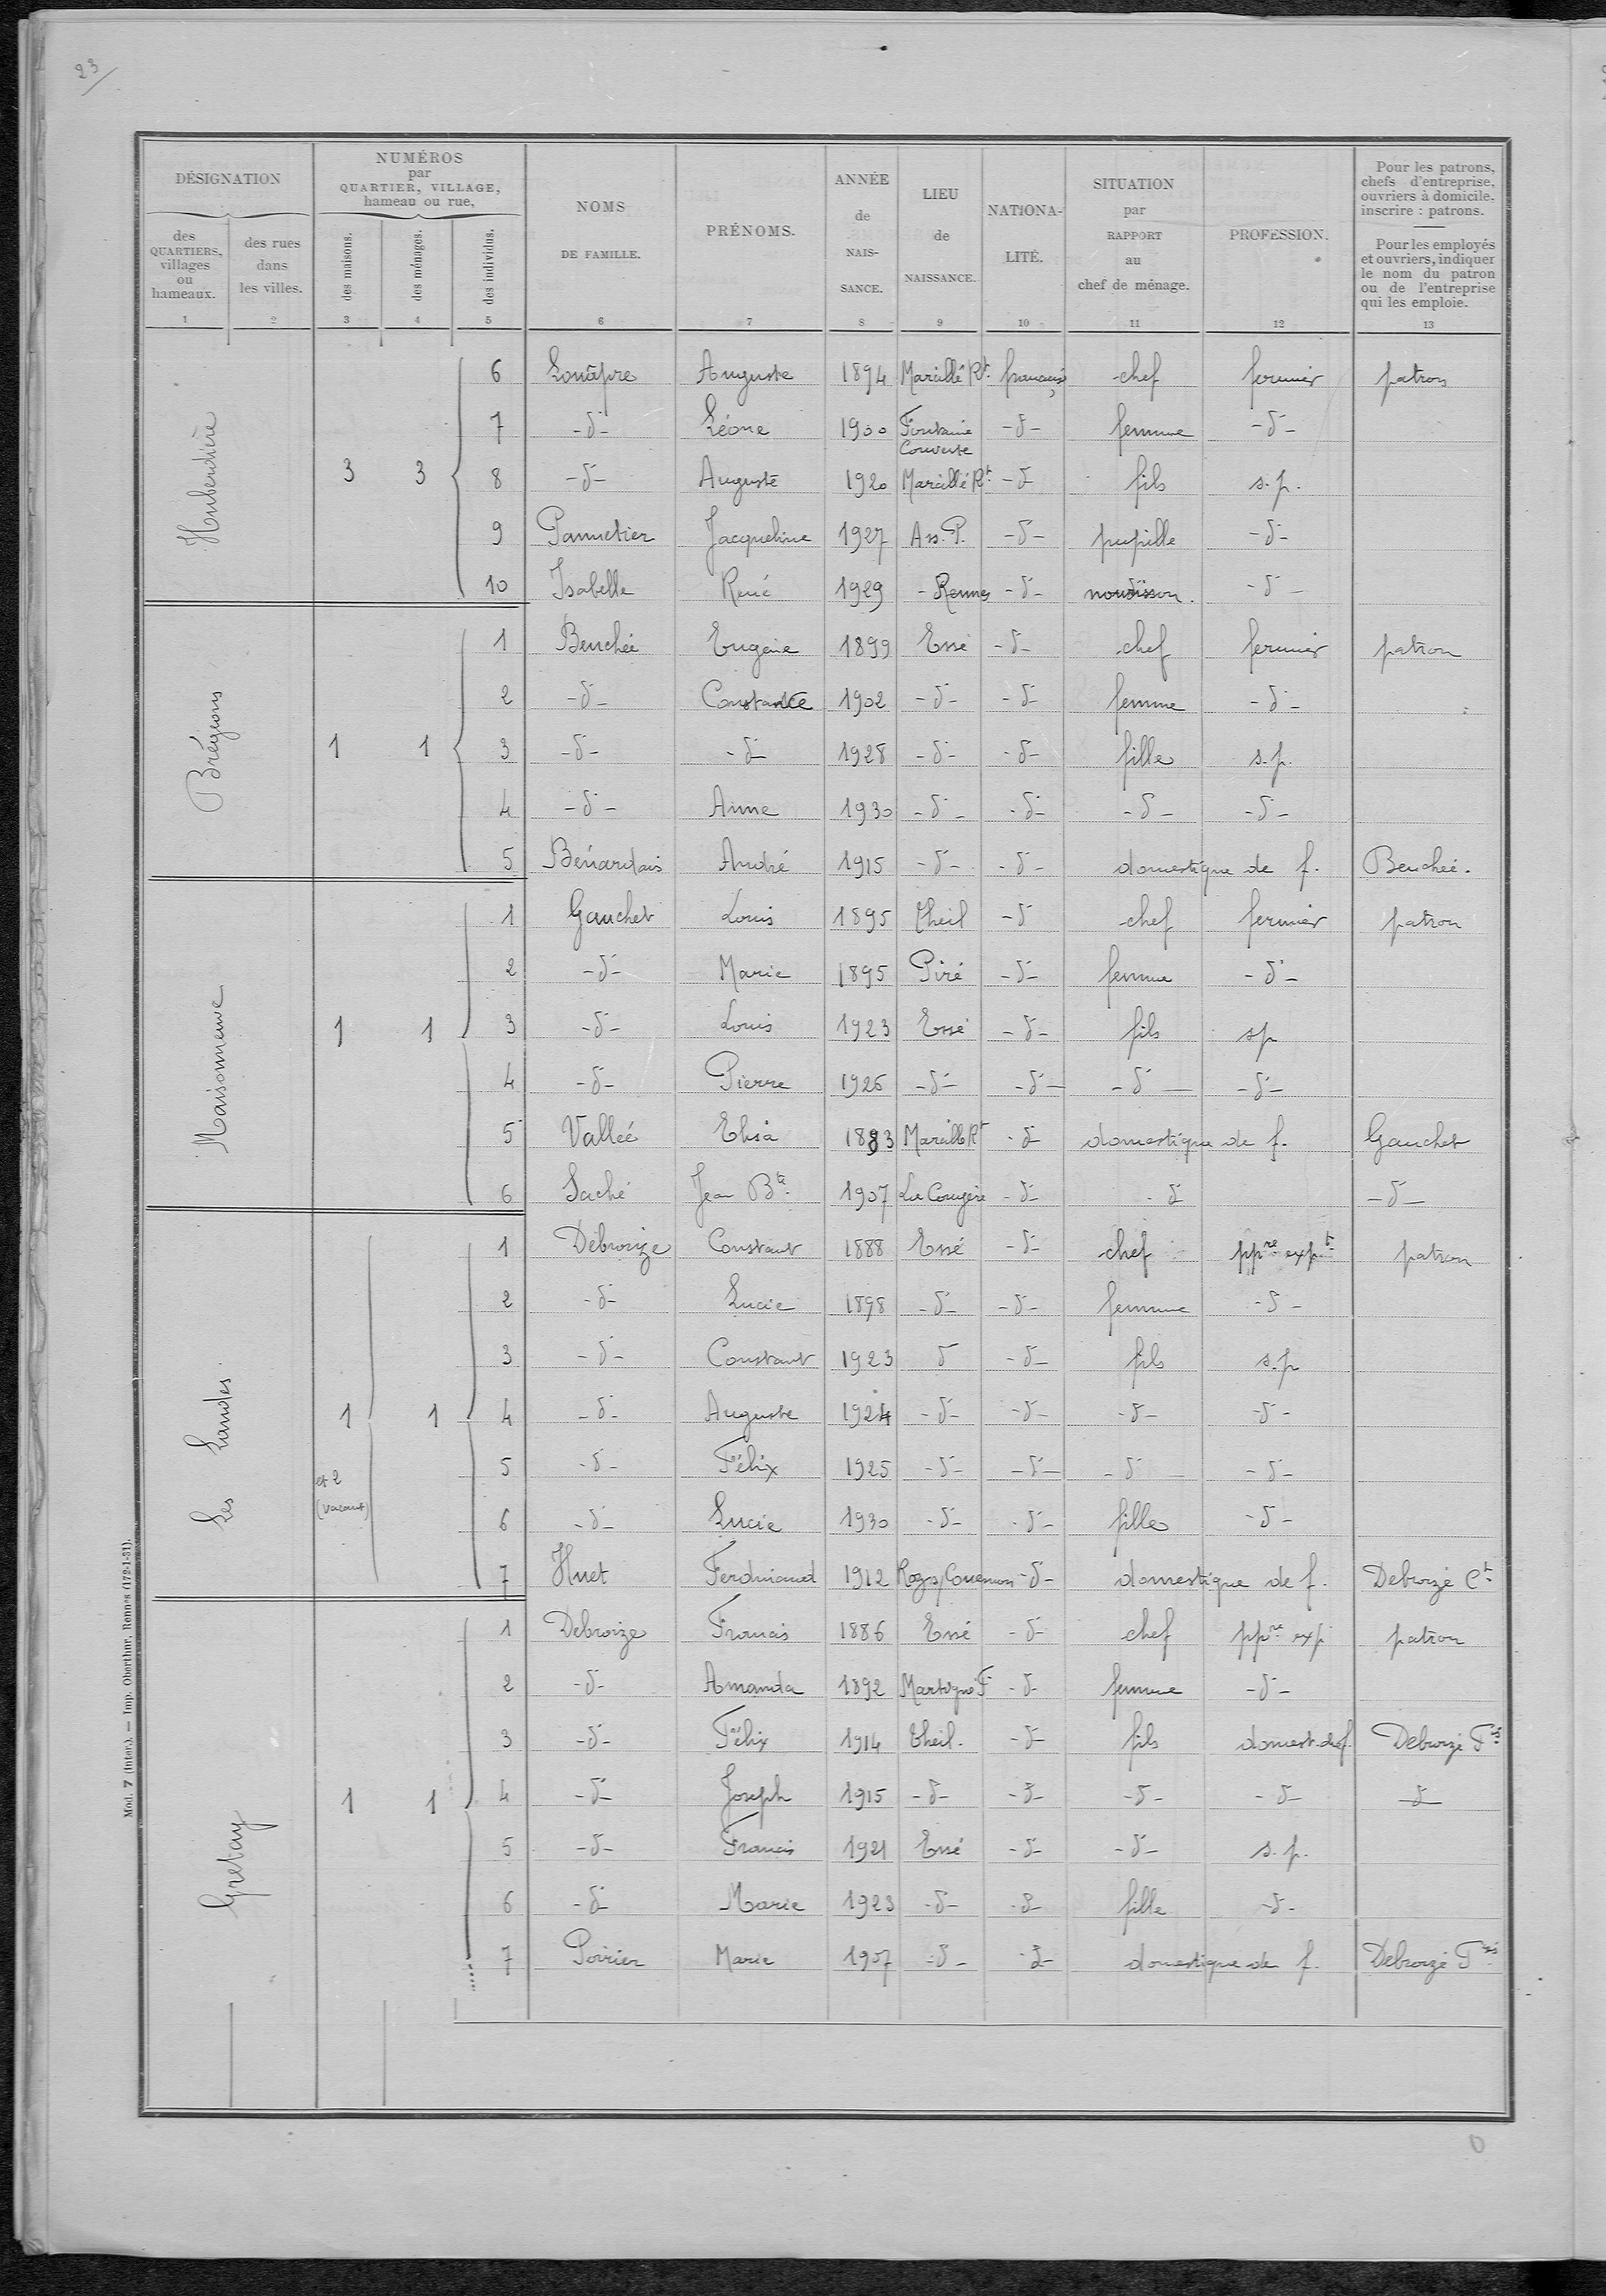 23
DÉSIGNATION
NUMÉROS
par
QUARTIER, VILLAGE,
hameau ou rue,
NOMS
DE FAMILLE.
PRÉNOMS.
ANNÉE
de
NAIS-
SANCE.
LIEU
de
NAISSANCE.
NATIONA-
LITÉ.
SITUATION
par
RAPPORT
au
chef de ménage.
PROFESSION.
Pour les patrons,
chefs d'entreprise,
ouvriers à domicile,
inscrire : patrons.
Pour les employés
et ouvriers, indiquer
le nom du patron
ou de l'entreprise
qui les emploie.
des
QUARTIERS,
villages
ou
hameaux.
des rues
dans
les villes.
des maisons.
des ménages.
des individus.
1 2 3 4 5 6 7 8 9 10 11 12 13
Huberdière
3 3
6 Louâpre Auguste 1894 Marcillé Rt. français chef fermier patron
7 -d- Léone 1900 Fontaine Couverte -d- femme -d-
8 -d- Auguste 1920 Marcillé Rt. -d- fils s.p.
9 Pannetier Jacqueline 1927 As. P. -d- pupille -d-
10 Isabelle René 1929 - Rennes -d- nourrisson. -d-
Brégeons
1 1
1 Beuchée Eugène 1899 Essé -d- chef fermier patron
2 -d- Constance 1902 -d- -d- femme -d-
3 -d- -d- 1928 -d- -d- fille s.p.
4 -d- Anne 1930 -d- -d- -d- -d-
5 Bénardais André 1915 -d- -d- domestique de f. Beuchée.
Maisonneuve
1 1
1 Gauchet Louis 1895 Theil -d chef fermier patron
2 -d- Marie 1895 Piré -d- femme -d-
3 -d- Louis 1923 Essé -d- fils sp
4 -d- Pierre 1926 -d- -d- -d- -d-
5 Vallée Elisa 1883 Marcillé Rt -d domestique de f. Gauchet
6 Saché Jean Bte. 1907 La Couyère -d- -d -d-
Les Landes
1 1
et 2
(vacant)
1 Debroize Constant 1888 Essé -d- chef ppre expt patron
2 -d- Lucie 1898 -d- -d- femme -d-
3 -d- Constant 1923 d -d- fils s.p
4 -d- Auguste 1924 -d- -d- -d- -d-
5 -d- Félix 1925 -d- -d- -d- -d-
6 -d- Lucie 1930 -d- -d- fille -d-
7 Huet Ferdinand 1912 Roz s/ Couesnon -d- domestique de f. Debroize Ct
Gretay
1 1
1 Debroize Francis 1886 Essé -d- chef ppre exp patron
2 -d- Amanda 1892 Martigné F -d- femme -d-
3 -d- Félix 1914 Theil. -d- fils domest. de f. Debroize Fis
4 -d- Joseph 1915 -d- -d- -d- -d- -d-
5 -d- Francis 1921 Essé -d- -d- s.p.
6 -d- Marie 1923 -d- -d- fille -d-
7 Poirier Marie 1907 -d- -d- domestique de f. Debroize Fis
Mod. 7 (Inter.). — Imp. Oberthur, Rennes (172-1-31).